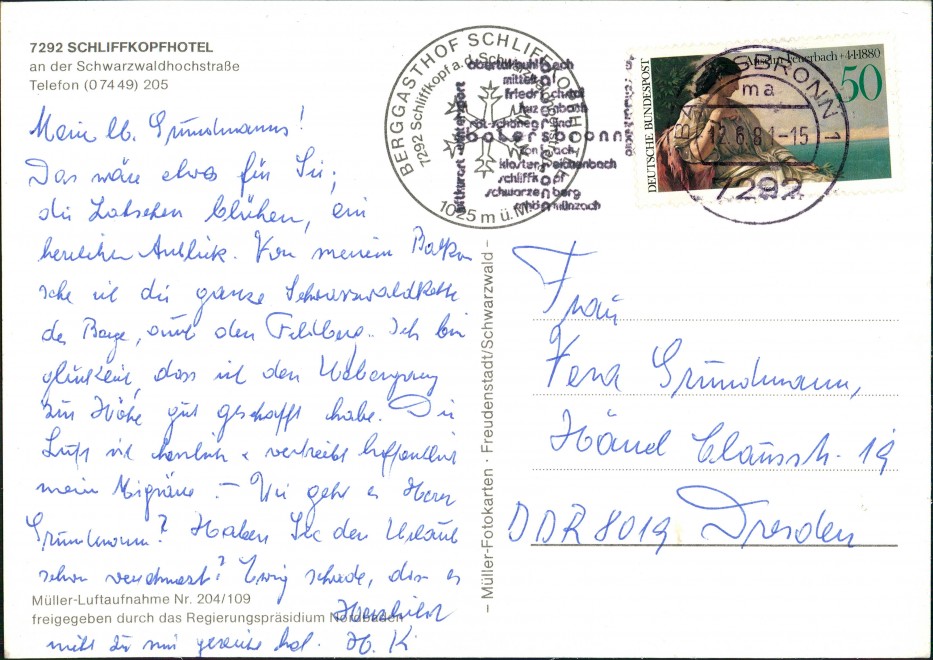 7292 SCHLIFFKOPFHOTEL
an der Schwarzwaldhochstraße
Telefon (0 74 49) 205
Meine lb. Grundmanns!
Das wäre etwas für Sie;
die Latschen blühen, ein
herrlicher Anblick. Von meinem Balkon
sehe ich die ganze Schwarzwaldkette
der Berge, und den Feldberg. Ich bin
glücklich, dass ich den Übergang
zur Höhe gut geschafft habe. Die
Luft ist herrlich & vertreibt hoffentlich
meine Migräne. – Wie geht es Herrn
Grundmann? Haben Sie den Urlaub
schon
Ewig schade, dass es
Müller-Luftaufnahme Nr. 204/109
freigegeben durch das Regierungspräsidium Nordbaden
nicht zu mir gereicht hat. H. K
– Müller-Fotokarten · Freudenstadt/Schwarzwald –
BERGGASTHOF SCHLIFFKOPFHOTEL
7292 Schliffkopf a. d.
1025 m ü. M.
obertal buhlbach
mitteltal
friedrichstal
tonbach
kloster reichenbach
schliffkopf
schwarzenberg
schönmünzach
baiersbronn
luftkurort wintersport
DEUTSCHE BUNDESPOST
Anselm Feuerbach † 4.1.1880
50
BAIERSBRONN 1
ma
12.6.81-15
7292
Frau
Vera Grundmann,
Händ Claussstr. 19
DDR 8019 Dresden